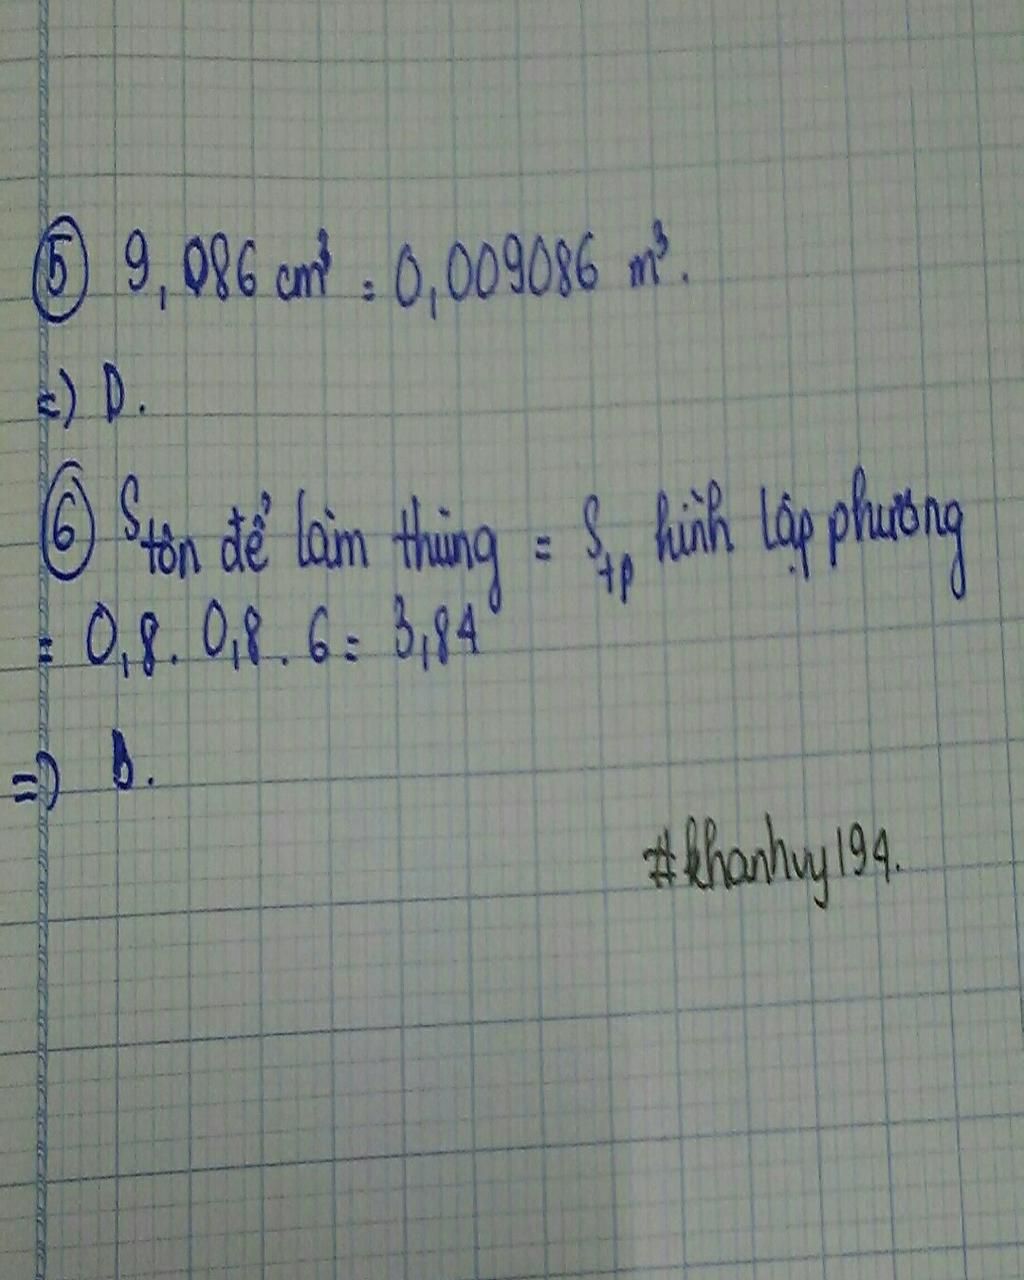 ⑤ 9,086 cm³ = 0,009086 m³.
=) D.
⑥ Stôn để làm thùng = Stp hình lập phương
= 0,8. 0,8. 6 = 3,84
=) D.
#khanhvy194.